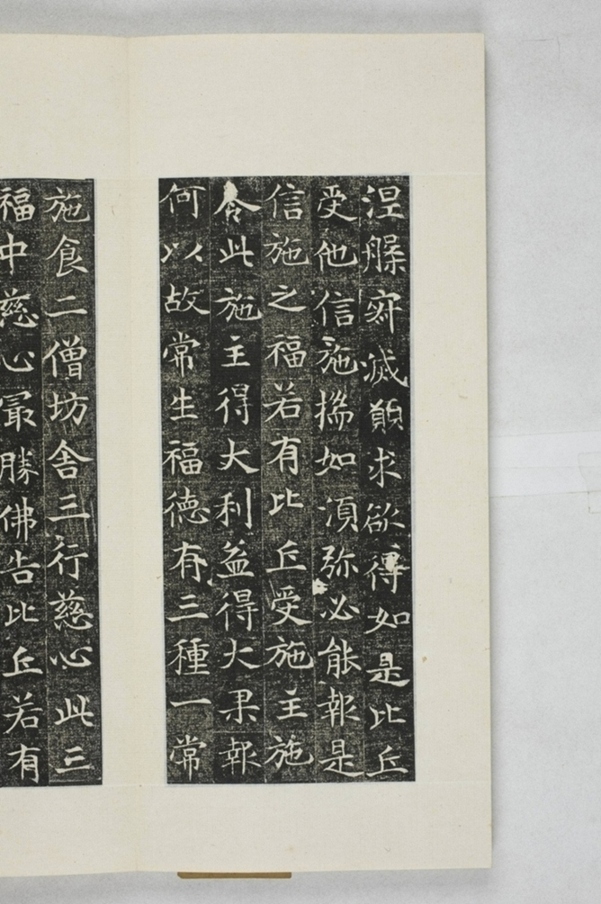 涅槃𡧯滅願求欲得如是比丘
受他信施揣如湏弥必能報是
信施之福若有比丘受施主施
令此施主得大利益得大果報
何以故常生福德有三種一常
施食二僧坊舍三行慈心此三
福中慈心㝡勝佛告比丘若有